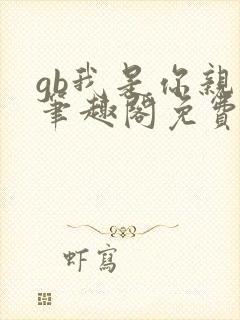 gb我是你親
筆趣閣免費
虾寫